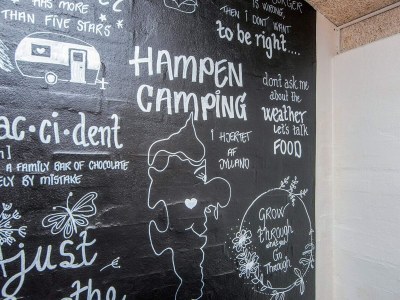 HAS MORE
THAN FIVE STARS
BURGER
IS WRONG,
THEN I DON'T WANT
to be right....
HAMPEN
CAMPING
I HJERTET
AF
JYLLAND
dont ask me
about the
weather
let's talk
FOOD
ac·ci·dent
A FAMILY BAR OF CHOCOLATE
BY MISTAKE
GROW
through
what you
Go
Through
Adjust
the